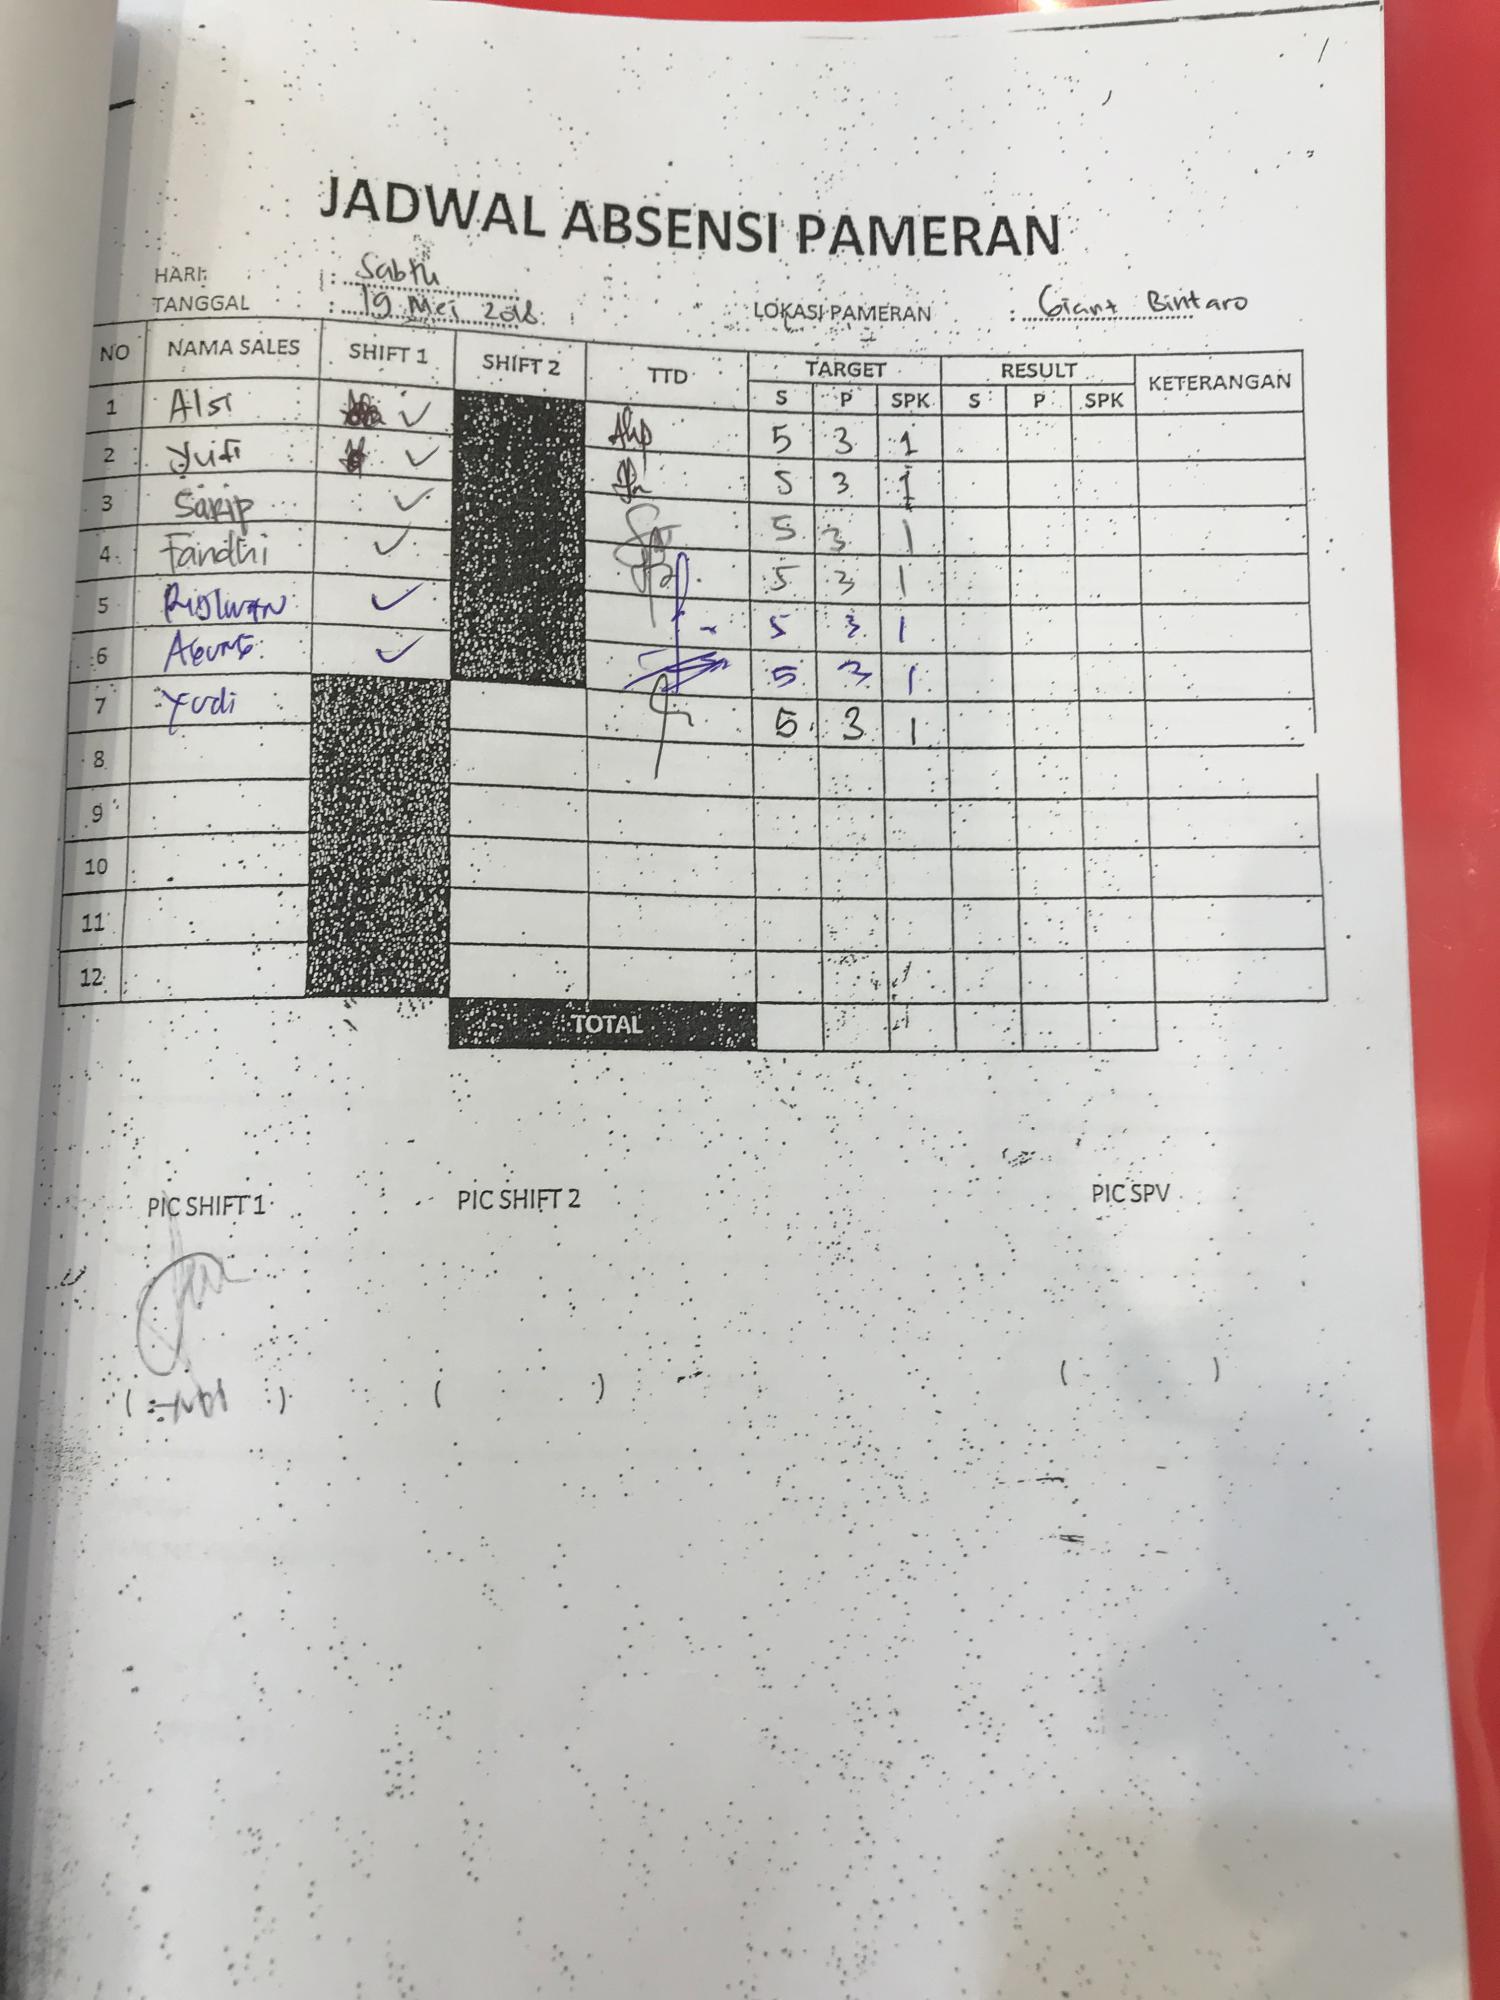 JADWAL ABSENSI PAMERAN
HARI : Sabtu
TANGGAL : 19 Mei 2018 LOKASI PAMERAN : Giant Bintaro
NO NAMA SALES SHIFT 1 SHIFT 2 TTD TARGET RESULT KETERANGAN
S P SPK S P SPK
1 Alsi ✓ 5 3 1
2 Yudi ✓ 5 3 1
3 Sarip ✓ 5 3 1
4 Fandhi ✓ 5 3 1
5 Ridwan ✓ 5 3 1
6 Agung ✓ 5 3 1
7 Yudi 5 3 1
8
9
10
11
12
TOTAL
PIC SHIFT 1 PIC SHIFT 2 PIC SPV
( ) ( ) ( )